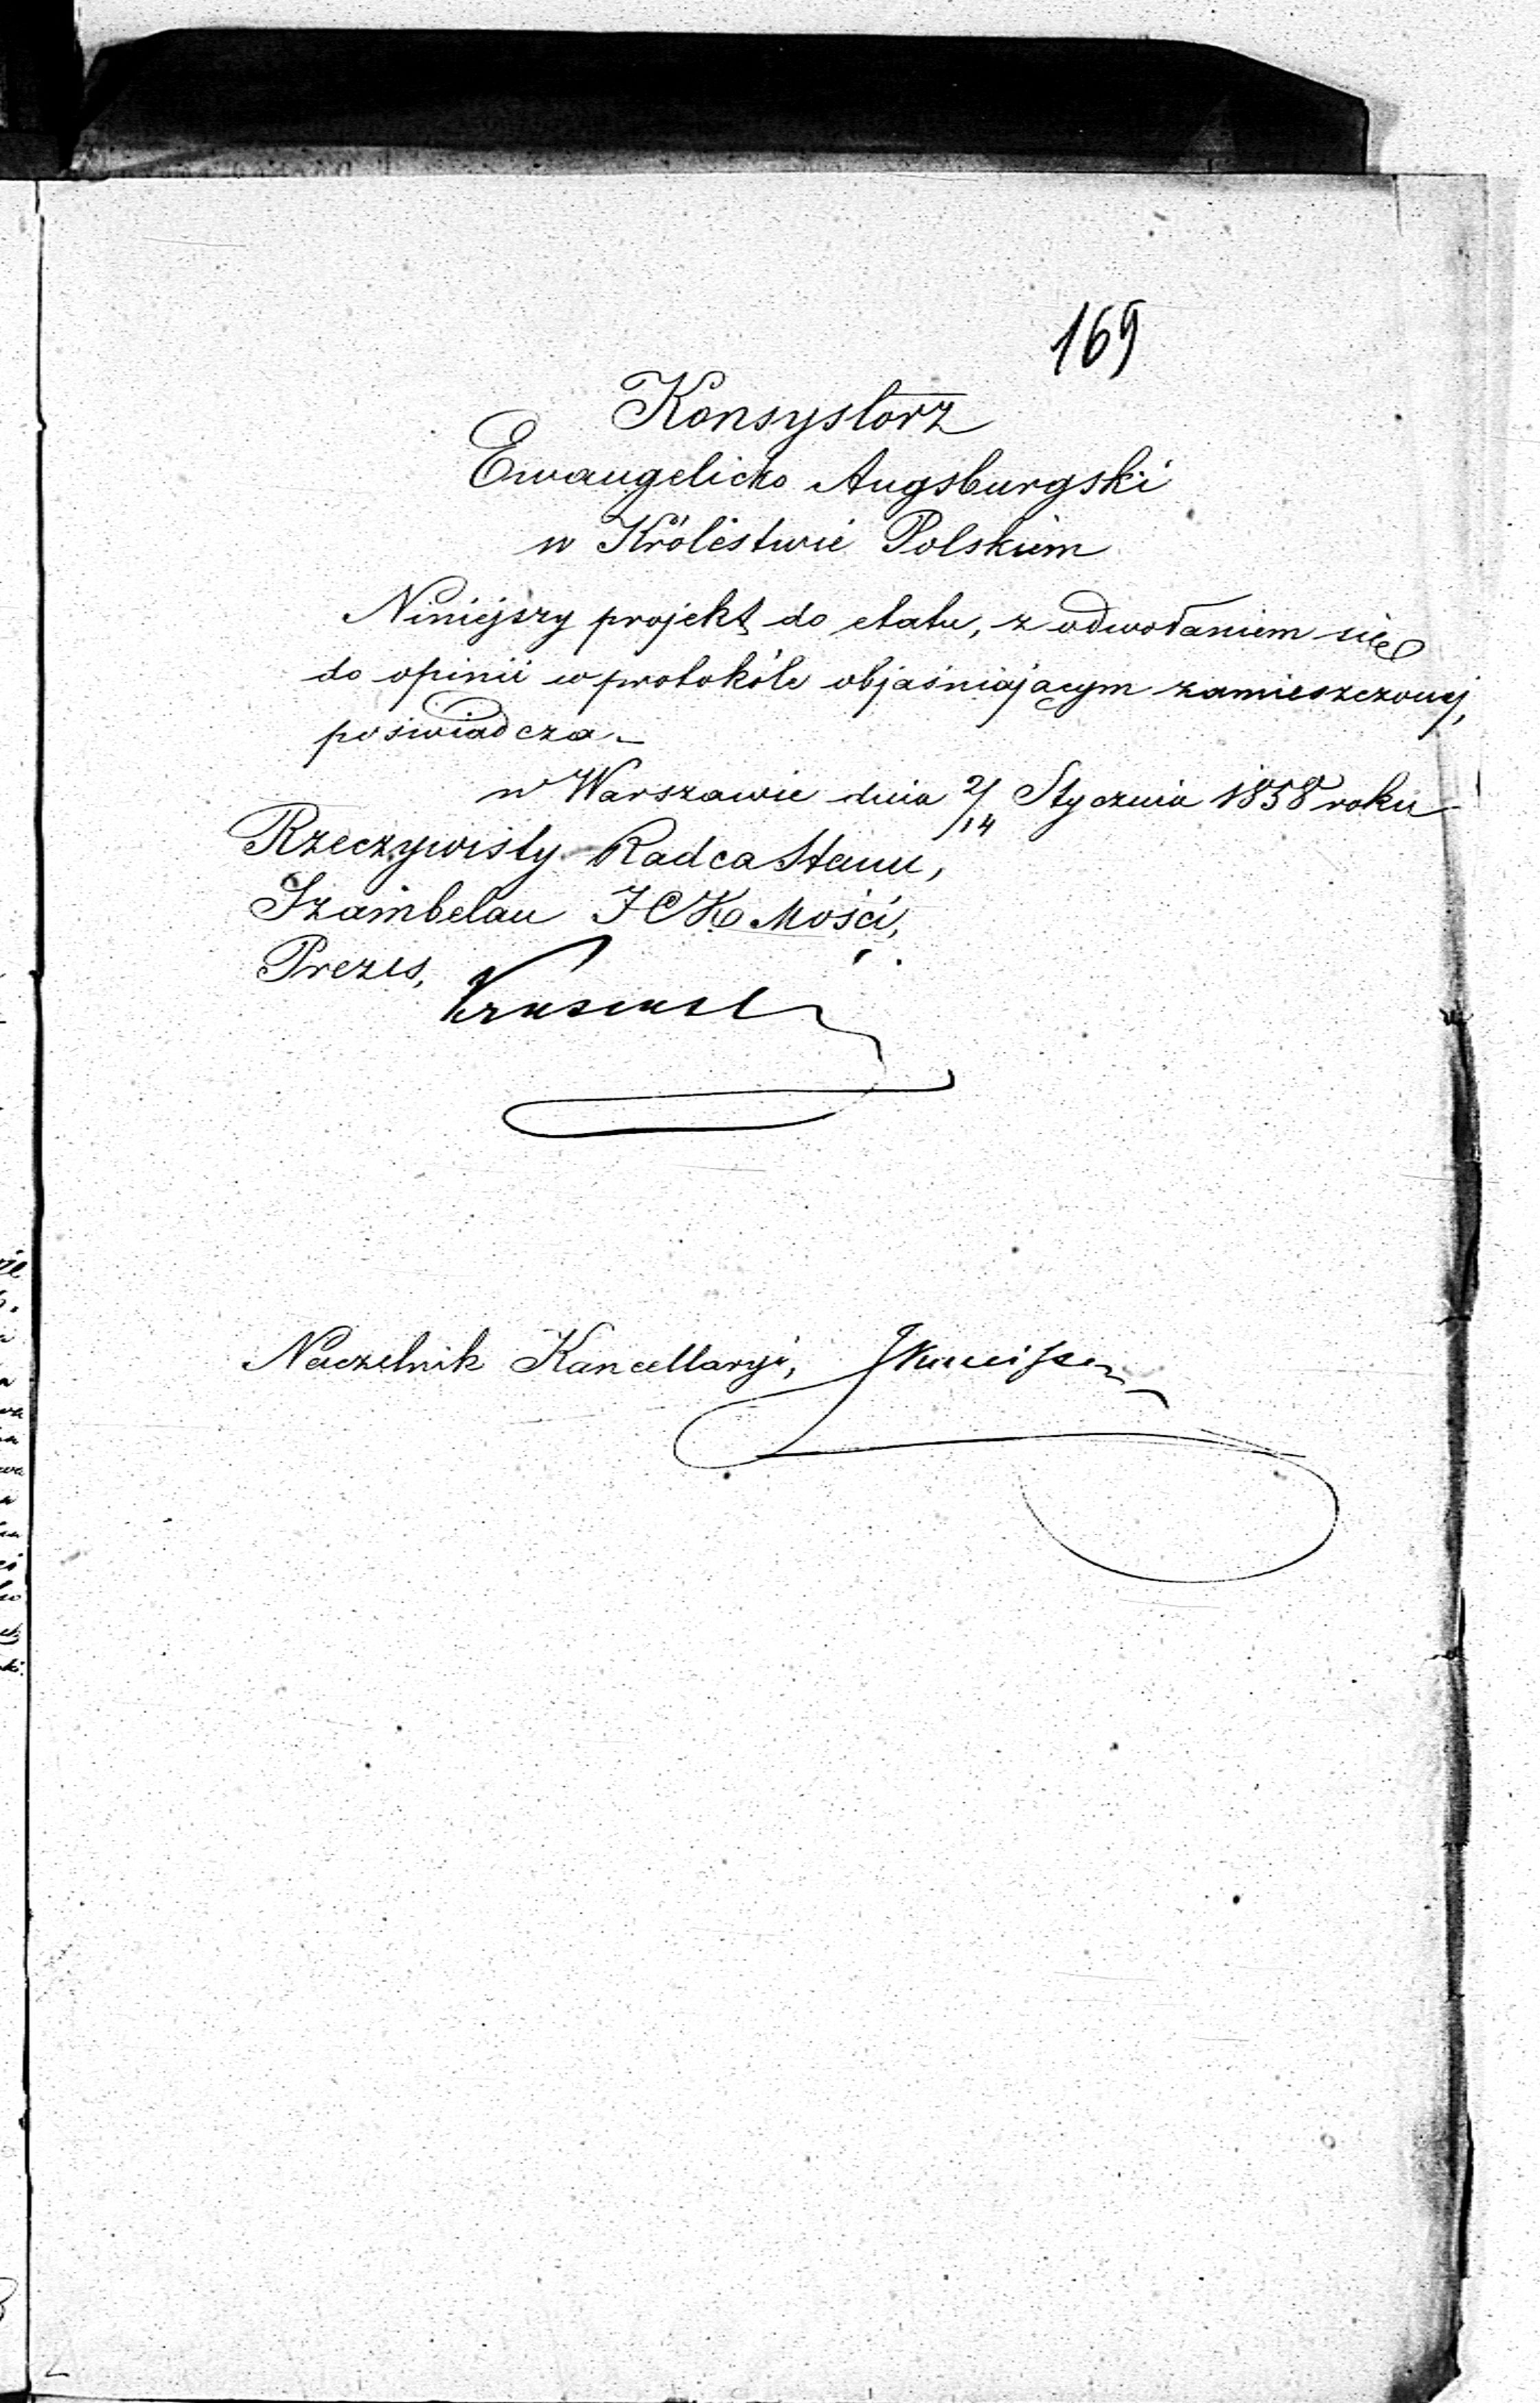 169
Konsystorz
Ewangelicko Augsburgski
w Królestwie Polskiem
Niniejszy projekt do etatu, z odwołaniem się
do opinii w protokóle objaśniającym zamieszczonej,
poświadcza.
w Warszawie dnia 2/14 Stycznia 1858 roku
Rzeczywisty Radca Stanu,
Szambelan JCK Mości,
Prezes,
Naczelnik Kancellaryi,